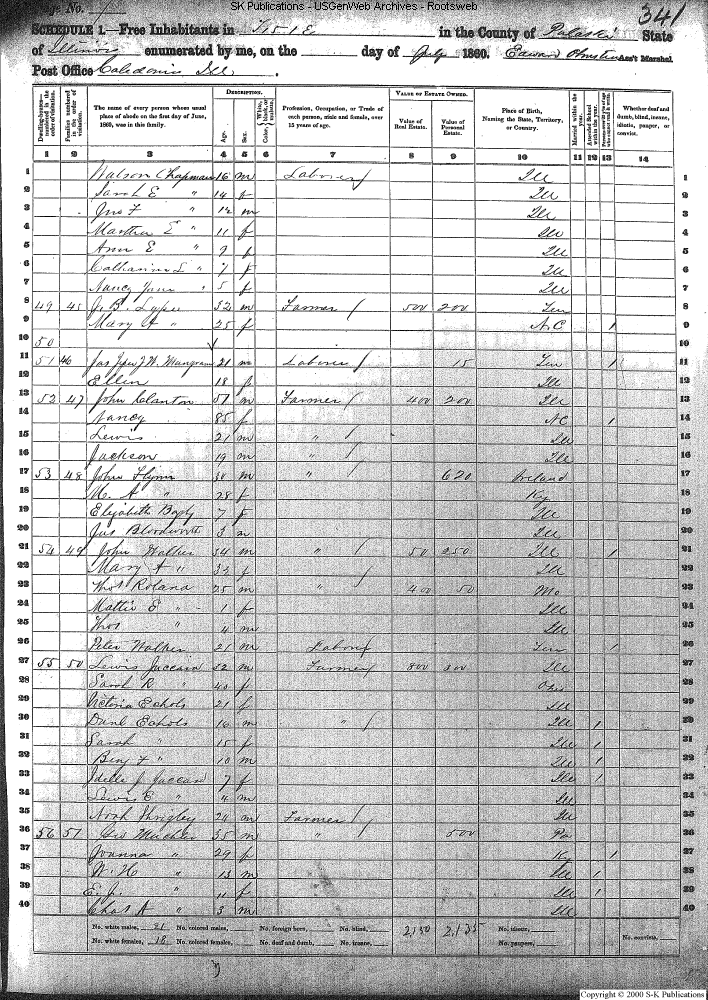 SK Publications - USGenWeb Archives - Rootsweb
Page No. 7
341
SCHEDULE 1.—Free Inhabitants in T 15 1 E in the County of Pulaski State
of Illinois enumerated by me, on the day of July 1860. Ass't Marshal.
Post Office Caledonia Ill.
DESCRIPTION. VALUE OF ESTATE OWNED.
Dwelling-houses—numbered in the order of visitation.
Families numbered in the order of visitation.
The name of every person whose usual place of abode on the first day of June, 1860, was in this family.
Age.
Sex.
Color, White, black, or mulatto.
Profession, Occupation, or Trade of each person, male and female, over 15 years of age.
Value of Real Estate.
Value of Personal Estate.
Place of Birth, Naming the State, Territory, or Country.
Married within the year.
Attended School within the year.
Persons over 20 y'rs of age who cannot read & write.
Whether deaf and dumb, blind, insane, idiotic, pauper, or convict.
1 2 3 4 5 6 7 8 9 10 11 12 13 14
1 Watson Chapman 16 m Laborer / Ill 1
2 Sarah E " 14 f Ill 2
3 Jno F " 12 m Ill 3
4 Martha E " 11 f Ill 4
5 Ann E " 9 f Ill 5
6 Catharine L " 7 f Ill 6
7 Nancy Jane " 5 f Ill 7
8 49 45 J. B. 32 m Farmer / 500 200 Ten 8
9 Mary A " 25 f N.C 1 9
10 50 10
11 51 46 J. W. Mangram 21 m Laborer / 15 Ten 1 11
12 Ellen 18 f Ill 12
13 52 47 John Clanton 51 m Farmer / 400 200 Ill 13
14 Nancy 85 f NC 1 14
15 Lewis 21 m " / Ill 15
16 Jackson 19 m " / Ill 16
17 53 48 John Flynn 38 m " / 620 Ireland 17
18 M. A " 28 f Ky 18
19 Elizabeth 7 f Ill 19
20 Jas Bloodworth 3 m Ill 20
21 54 49 John Walker 34 m " / 50 250 Ill 1 21
22 Mary A " 33 f Ill 22
23 Thos Roland 25 m " / 400 50 Mo 23
24 Mattie E " 1 f Ill 24
25 Thos " 4 m Ill 25
26 Peter Walker 21 m Labor / Ten 1 26
27 55 50 Lewis 52 m Farmer / 800 300 Ill 27
28 Sarah R " 40 f Ohio 28
29 Victoria Echols 21 f Ill 29
30 Danl Echols 16 m " / Ill 1 30
31 Sarah " 15 f Ill 1 31
32 Benj F " 10 m Ill 1 32
33 7 f Ill 1 33
34 Lewis E " 4 m Ill 34
35 Noah 24 m Farmer / Ill 35
36 56 51 35 m " / 500 Pa 36
37 Joanna " 29 f Ky 1 37
38 W. H " 13 m Ill 1 38
39 E. J. " 11 f Ill 1 39
40 Chas A " 3 m Ill 40
No. white males, 21 No. colored males, No. foreign born, No. blind, 2150 2135 No. idiotic,
No. white females, 18 No. colored females, No. deaf and dumb, No. insane, No. paupers, No. convicts,
Copyright © 2000 S-K Publications